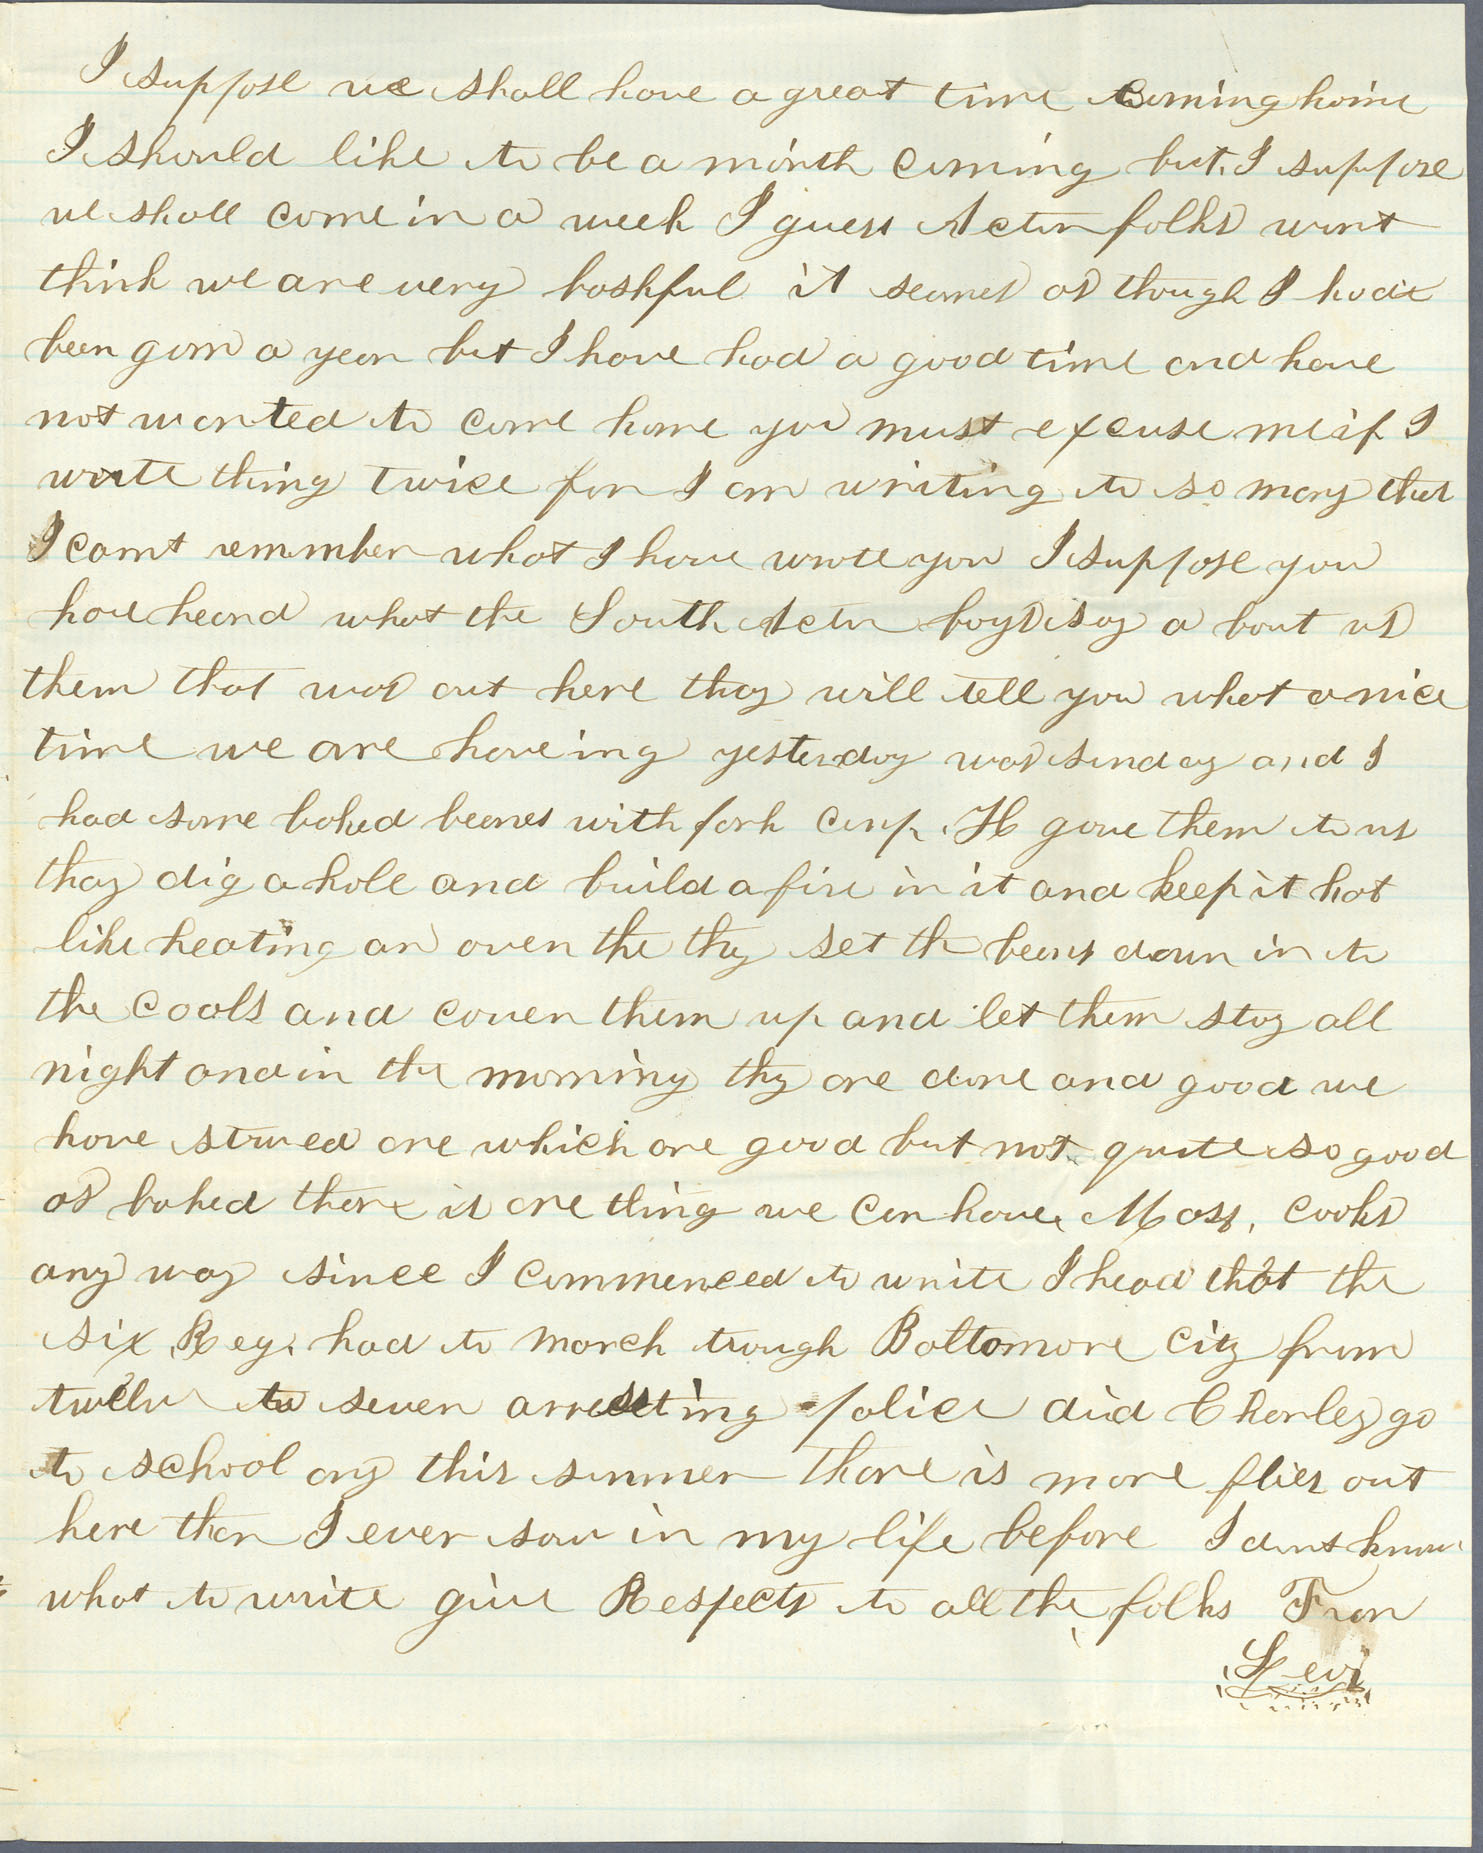 I suppose we shall have a great time Comeing home
I should like to be a month coming but I suppose
we shall come in a week I guess Acton folks wont
think we are very bashful it seames as though I had
been gorn a year but I have had a good time and have
not wanted to come home you must excuse me if I
write thing twice for I am writing to so many that
I carnt remember what I have wrote you I suppose you
have heard what the South Acton boys say a bout us
them that was out here thay will tell you what a nice
time we are haveing yesterday was sunday and I
had some baked beanes with pork Comp. H gave them to us
thay dig a hole and build a fire in it and keep it hot
like heating an oven the thy set th beans down in to
the coals and cover them up and let them stay all
night and in the morning thy are done and good we
have stwed one which are good but not quite so good
as baked thare is one thing we can have Mass. cooks
any way since I commenced to write I head that the
six Reg. had to march trough Baltomore City from
twelv to seven arresting police did Charley go
to school any this summer thare is more flies out
here then I ever saw in my life before I dont know
what to write give Respects to all the folks From
Levi